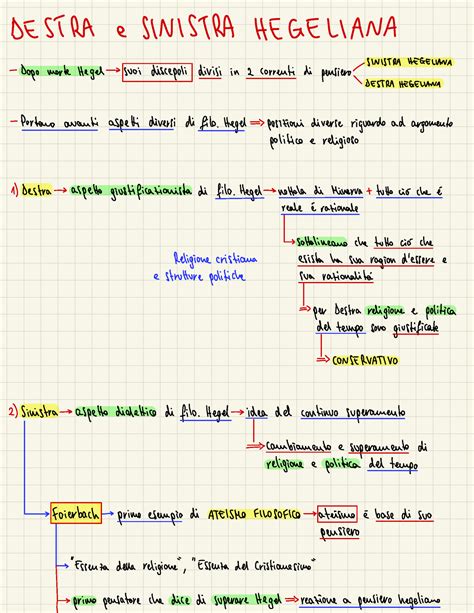 DESTRA e SINISTRA HEGELIANA
SINISTRA HEGELIANA
- Dopo morte Hegel → suoi discepoli divisi in 2 correnti di pensiero
DESTRA HEGELIANA
- Portano avanti aspetti diversi di filo. Hegel ⇒ posizioni diverse riguardo ad argomento
politico e religioso
1) Destra → aspetto giustificazionista di filo. Hegel → nottola di Minerva + tutto ciò che é
reale é razionale
→ sottolineano che tutto ciò che
esista ha sua ragion d'essere e
sua razionalità
Religione cristiana
e strutture politiche
⇒ per Destra religione e politica
del tempo sono giustificate
⇒ CONSERVATIVO
2) Sinistra → aspetto dialettico di filo. Hegel → idea del continuo superamento
⇒ Cambiamento e superamento di
religione e politica del tempo
Foierbach → primo esempio di ATEISMO FILOSOFICO → ateismo é base di suo
pensiero
→ "Essenza della religione", "Essenza del Cristianesimo"
→ primo pensatore che dice di superare Hegel ⇒ reazione a pensiero hegeliano